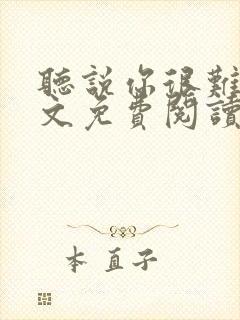 聽說你很難
文免費閱讀
本直子